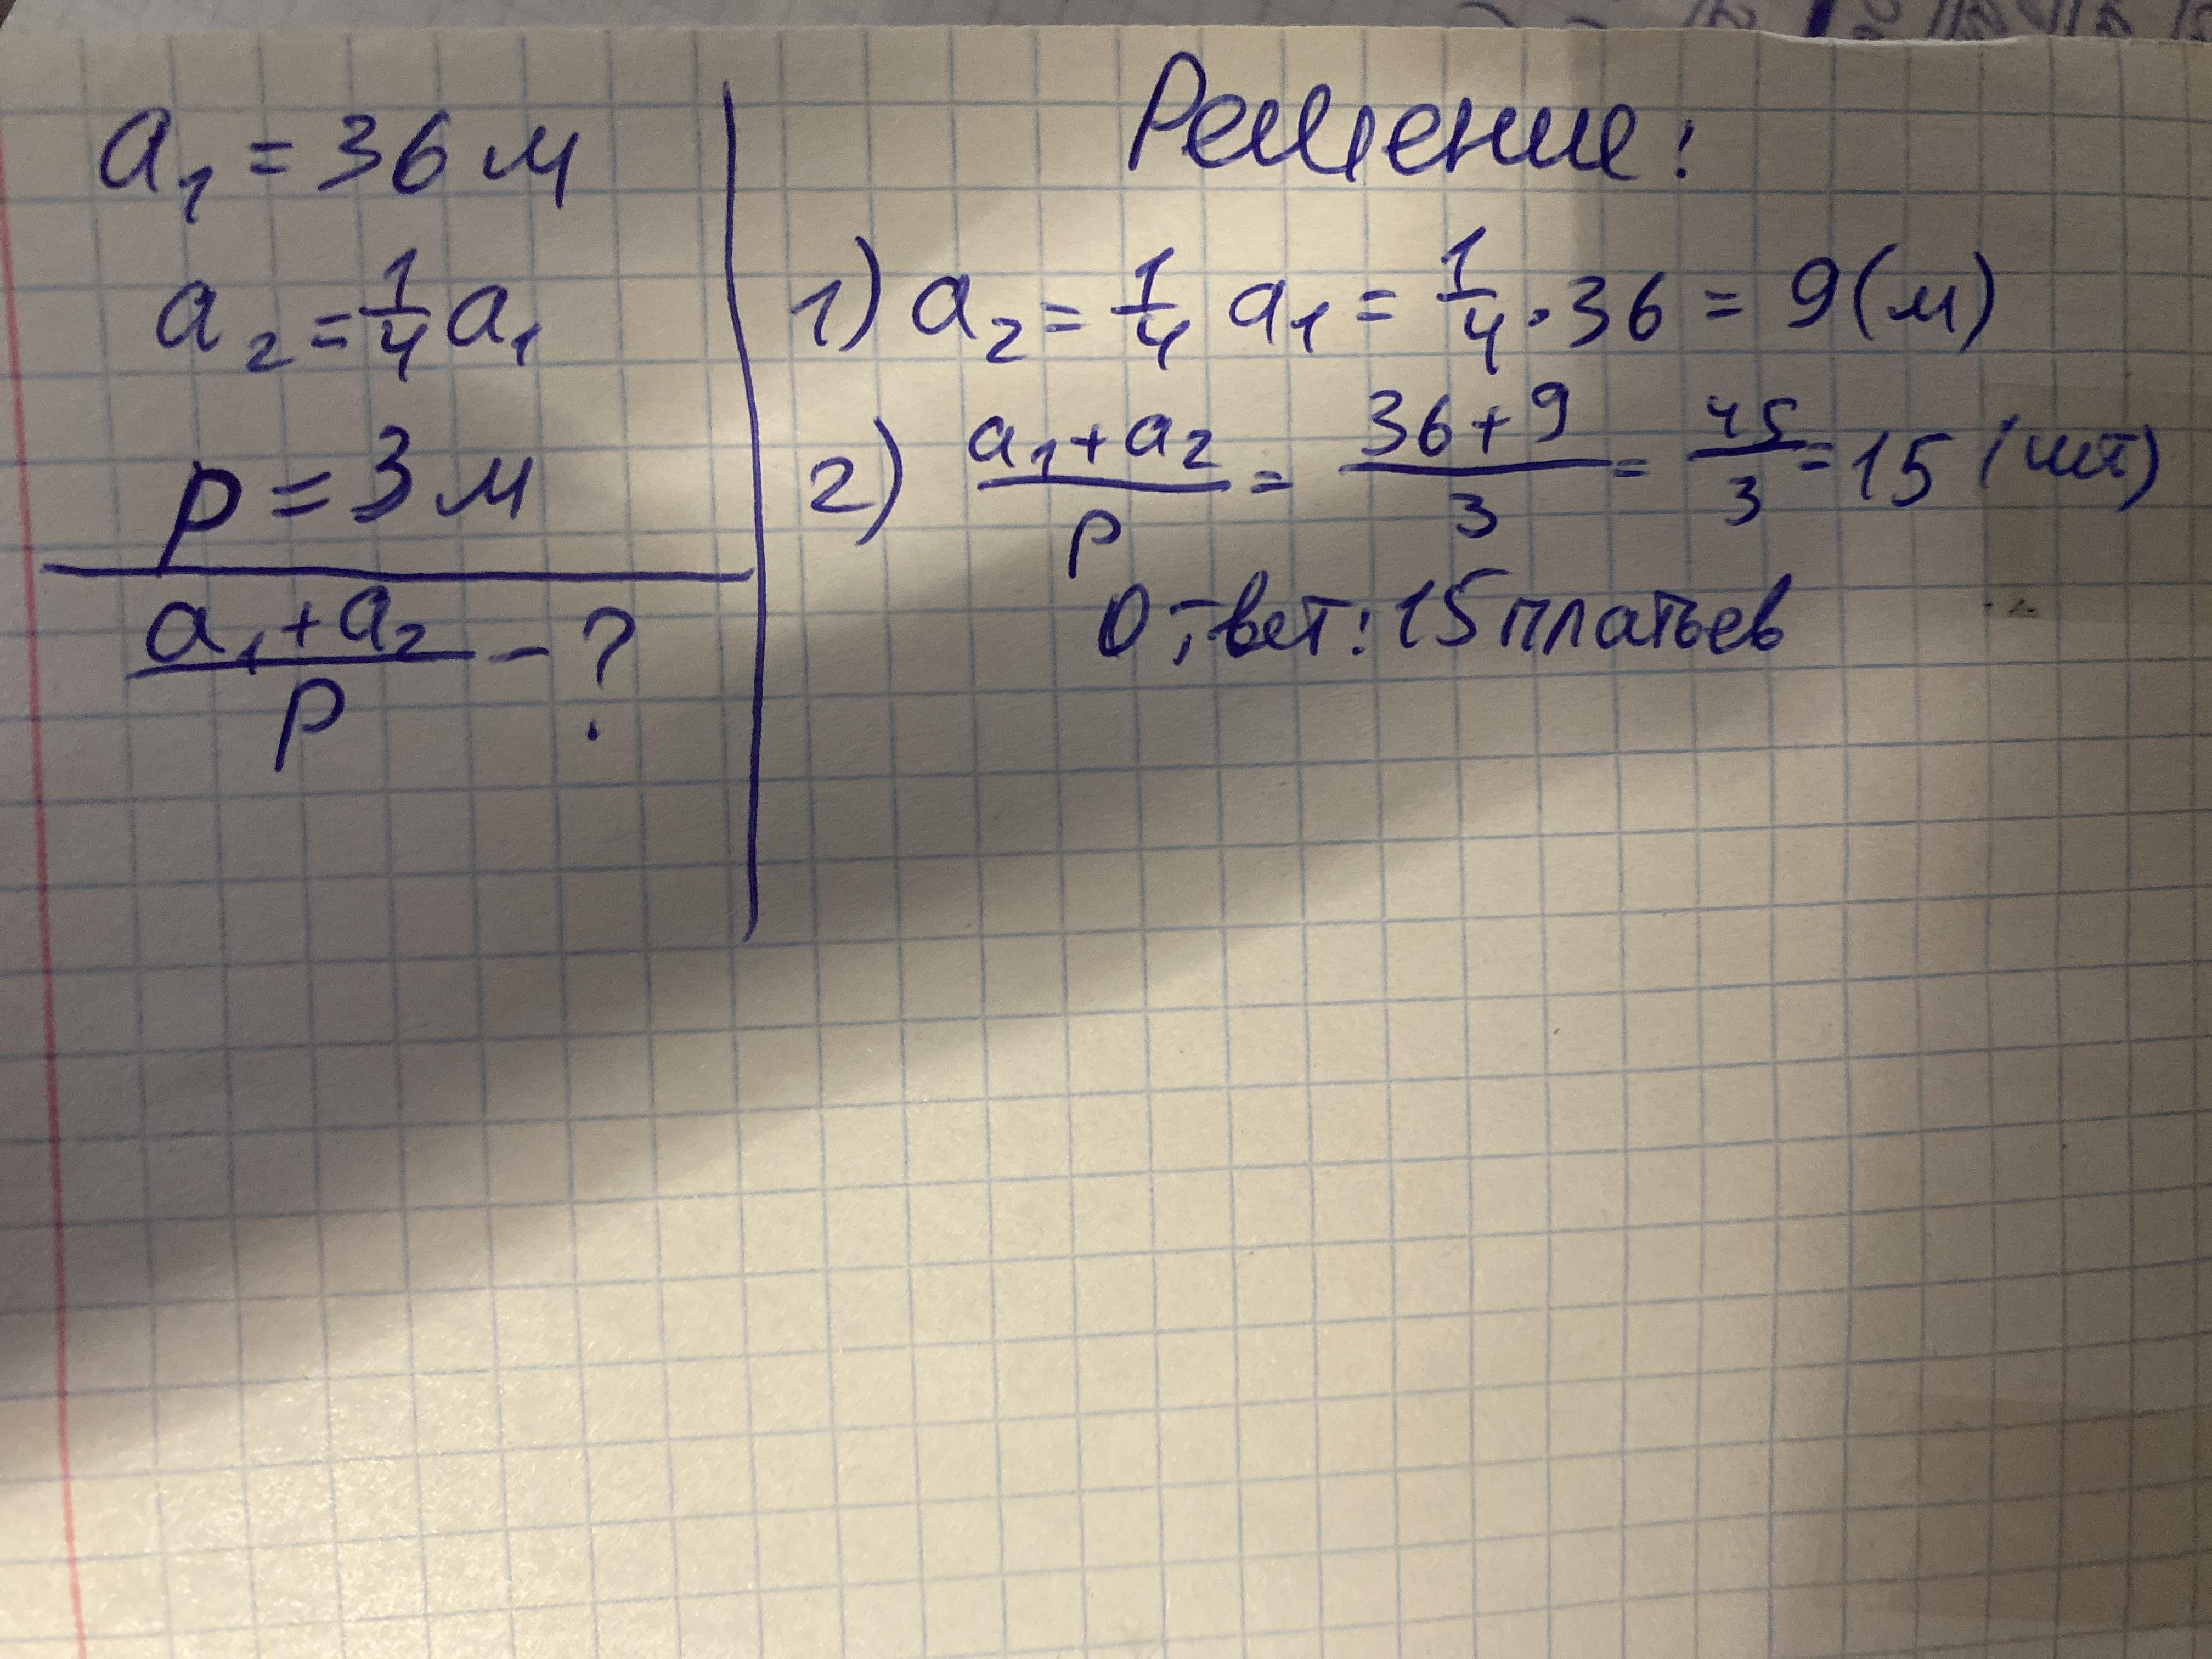 a₁ = 36 м
a₂ = 1/4 a₁
p = 3 м
(a₁ + a₂)/p - ?
Решение:
1) a₂ = 1/4 a₁ = 1/4 · 36 = 9 (м)
2) (a₁ + a₂)/p = (36 + 9)/3 = 45/3 = 15 (шт)
Ответ: 15 платьев